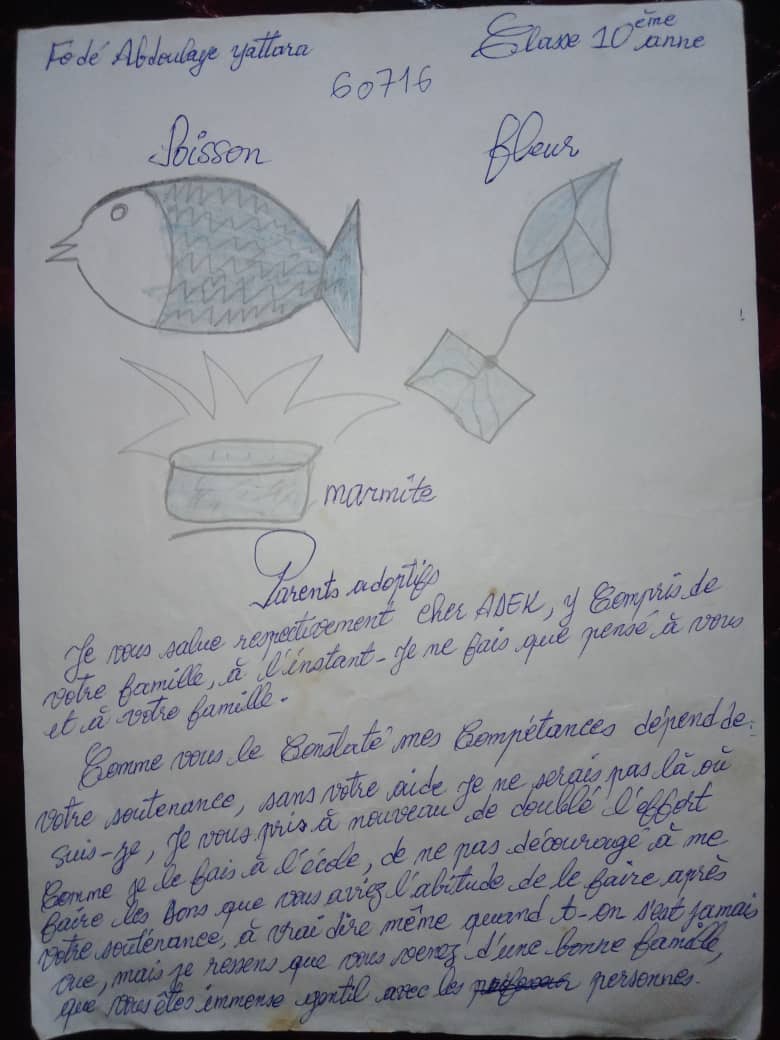 Fodé Abdoulaye Yattara Classe 10ème anne
60716
Poisson fleur
marmite
Parents adoptifs
Je vous salue respectivement cher ADEK, y Compris de
votre famille, à l'instant - Je ne fais que pensé à vous
et à votre famille.
Comme vous le Constaté mes Compétances dépend de
votre soutenance, sans votre aide Je ne serais pas là où
suis-je, Je vous pris à nouveau de doublé l'effort
Comme je le fais à l'école, de ne pas découragé à me
faire les dons que vous aviez l'abitude de le faire après
votre souténance, à vrai dire même quand t-on s'est jamais
vue, mais je ressens que vous venez d'une bonne famille,
que vous êtes immense gentil avec les personnes.